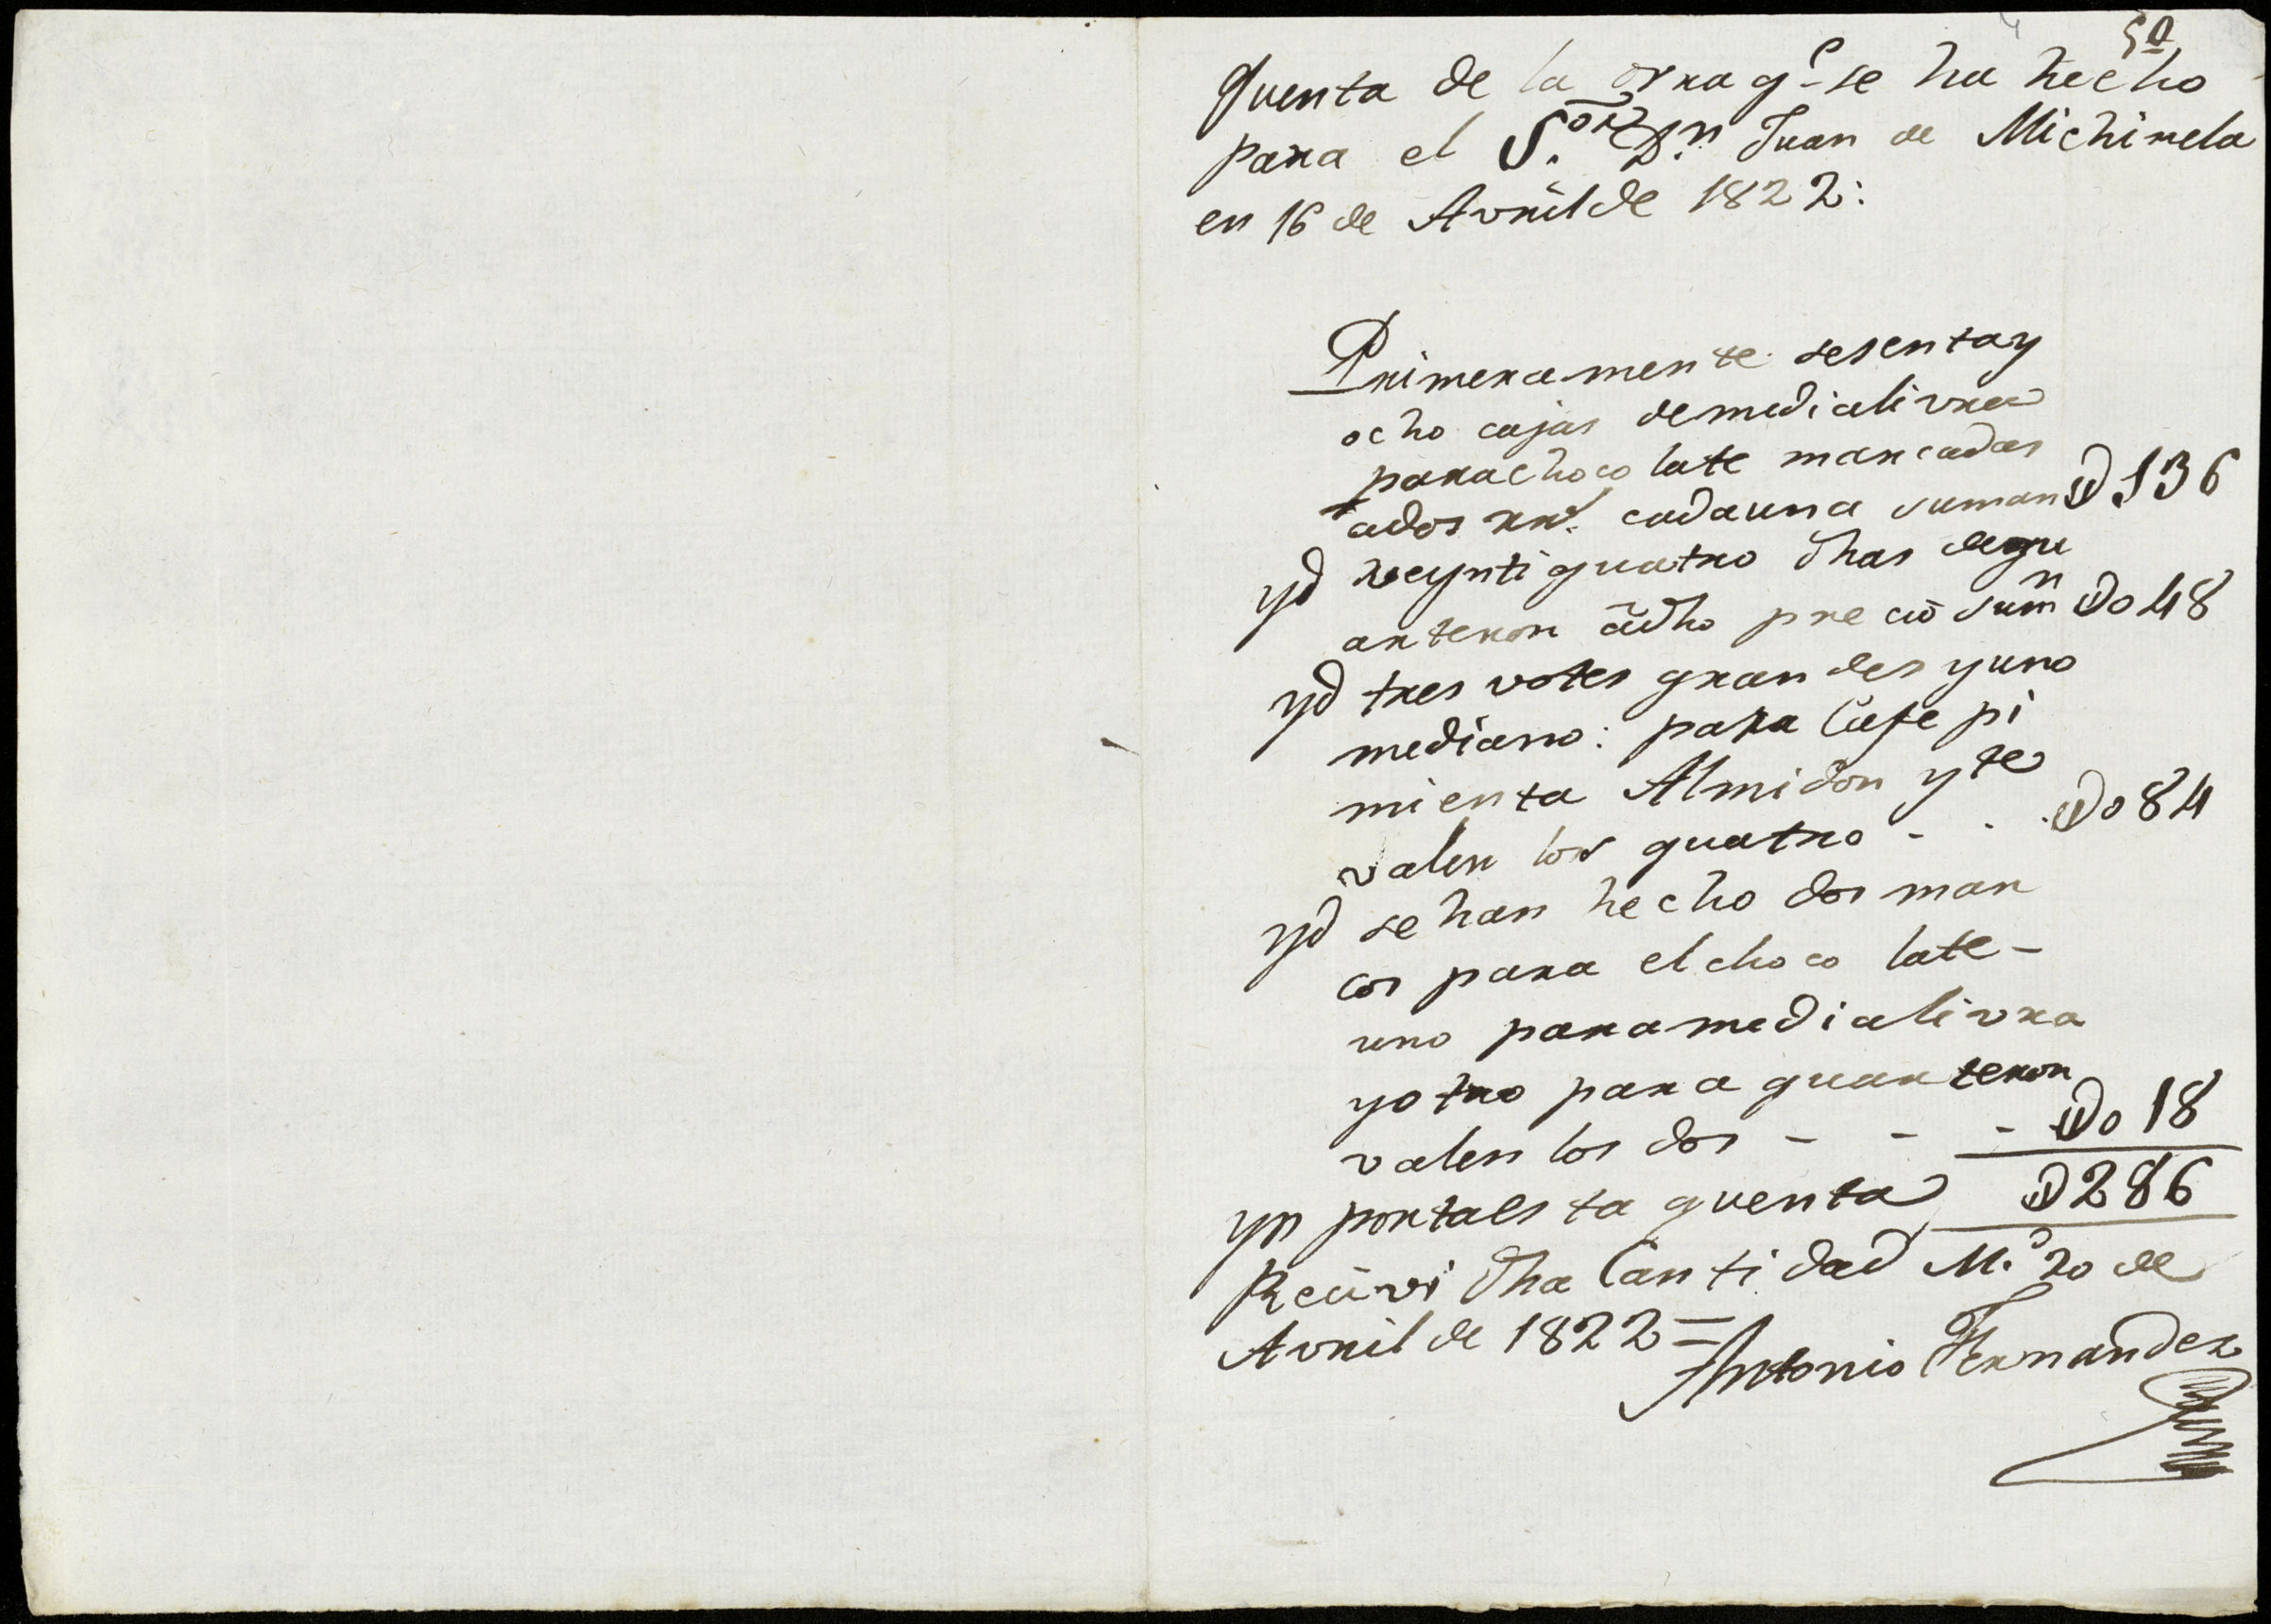 50
Quenta de la ovra q.e se ha hecho
para el S.or D.n Juan de Michirela
en 16 de Avril de 1822:
Primeramente sesentay
ocho cajas demedialivra
parachocolate marcadas
ados rr.s cadauna suman D 136
yd veyntiquatro dhas dequ
arteron adho precio sum.n Do 48
yd tres votes grandes yuno
mediano: para Cafe pi
mienta Almidon yte
valen los quatro - - Do 84
yd sehan hecho dos mar
cos para elchocolate -
uno paramedialivra
yotro para quarteron
valen los dos - - - Do 18
yn portaesta quenta D 286
Recivi dha Cantidad M.d 20 de
Avril de 1822 =
Antonio Fernandez